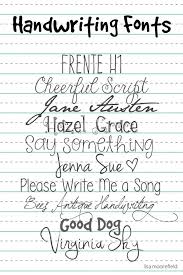 Handwriting Fonts
FRENTE H1
Cheerful Script
Jane Austen
Hazel Grace
Say something
Jenna Sue
Please Write Me a Song
Bees Antique Handwriting
Good Dog
Virginia Sky
lisa moorefield